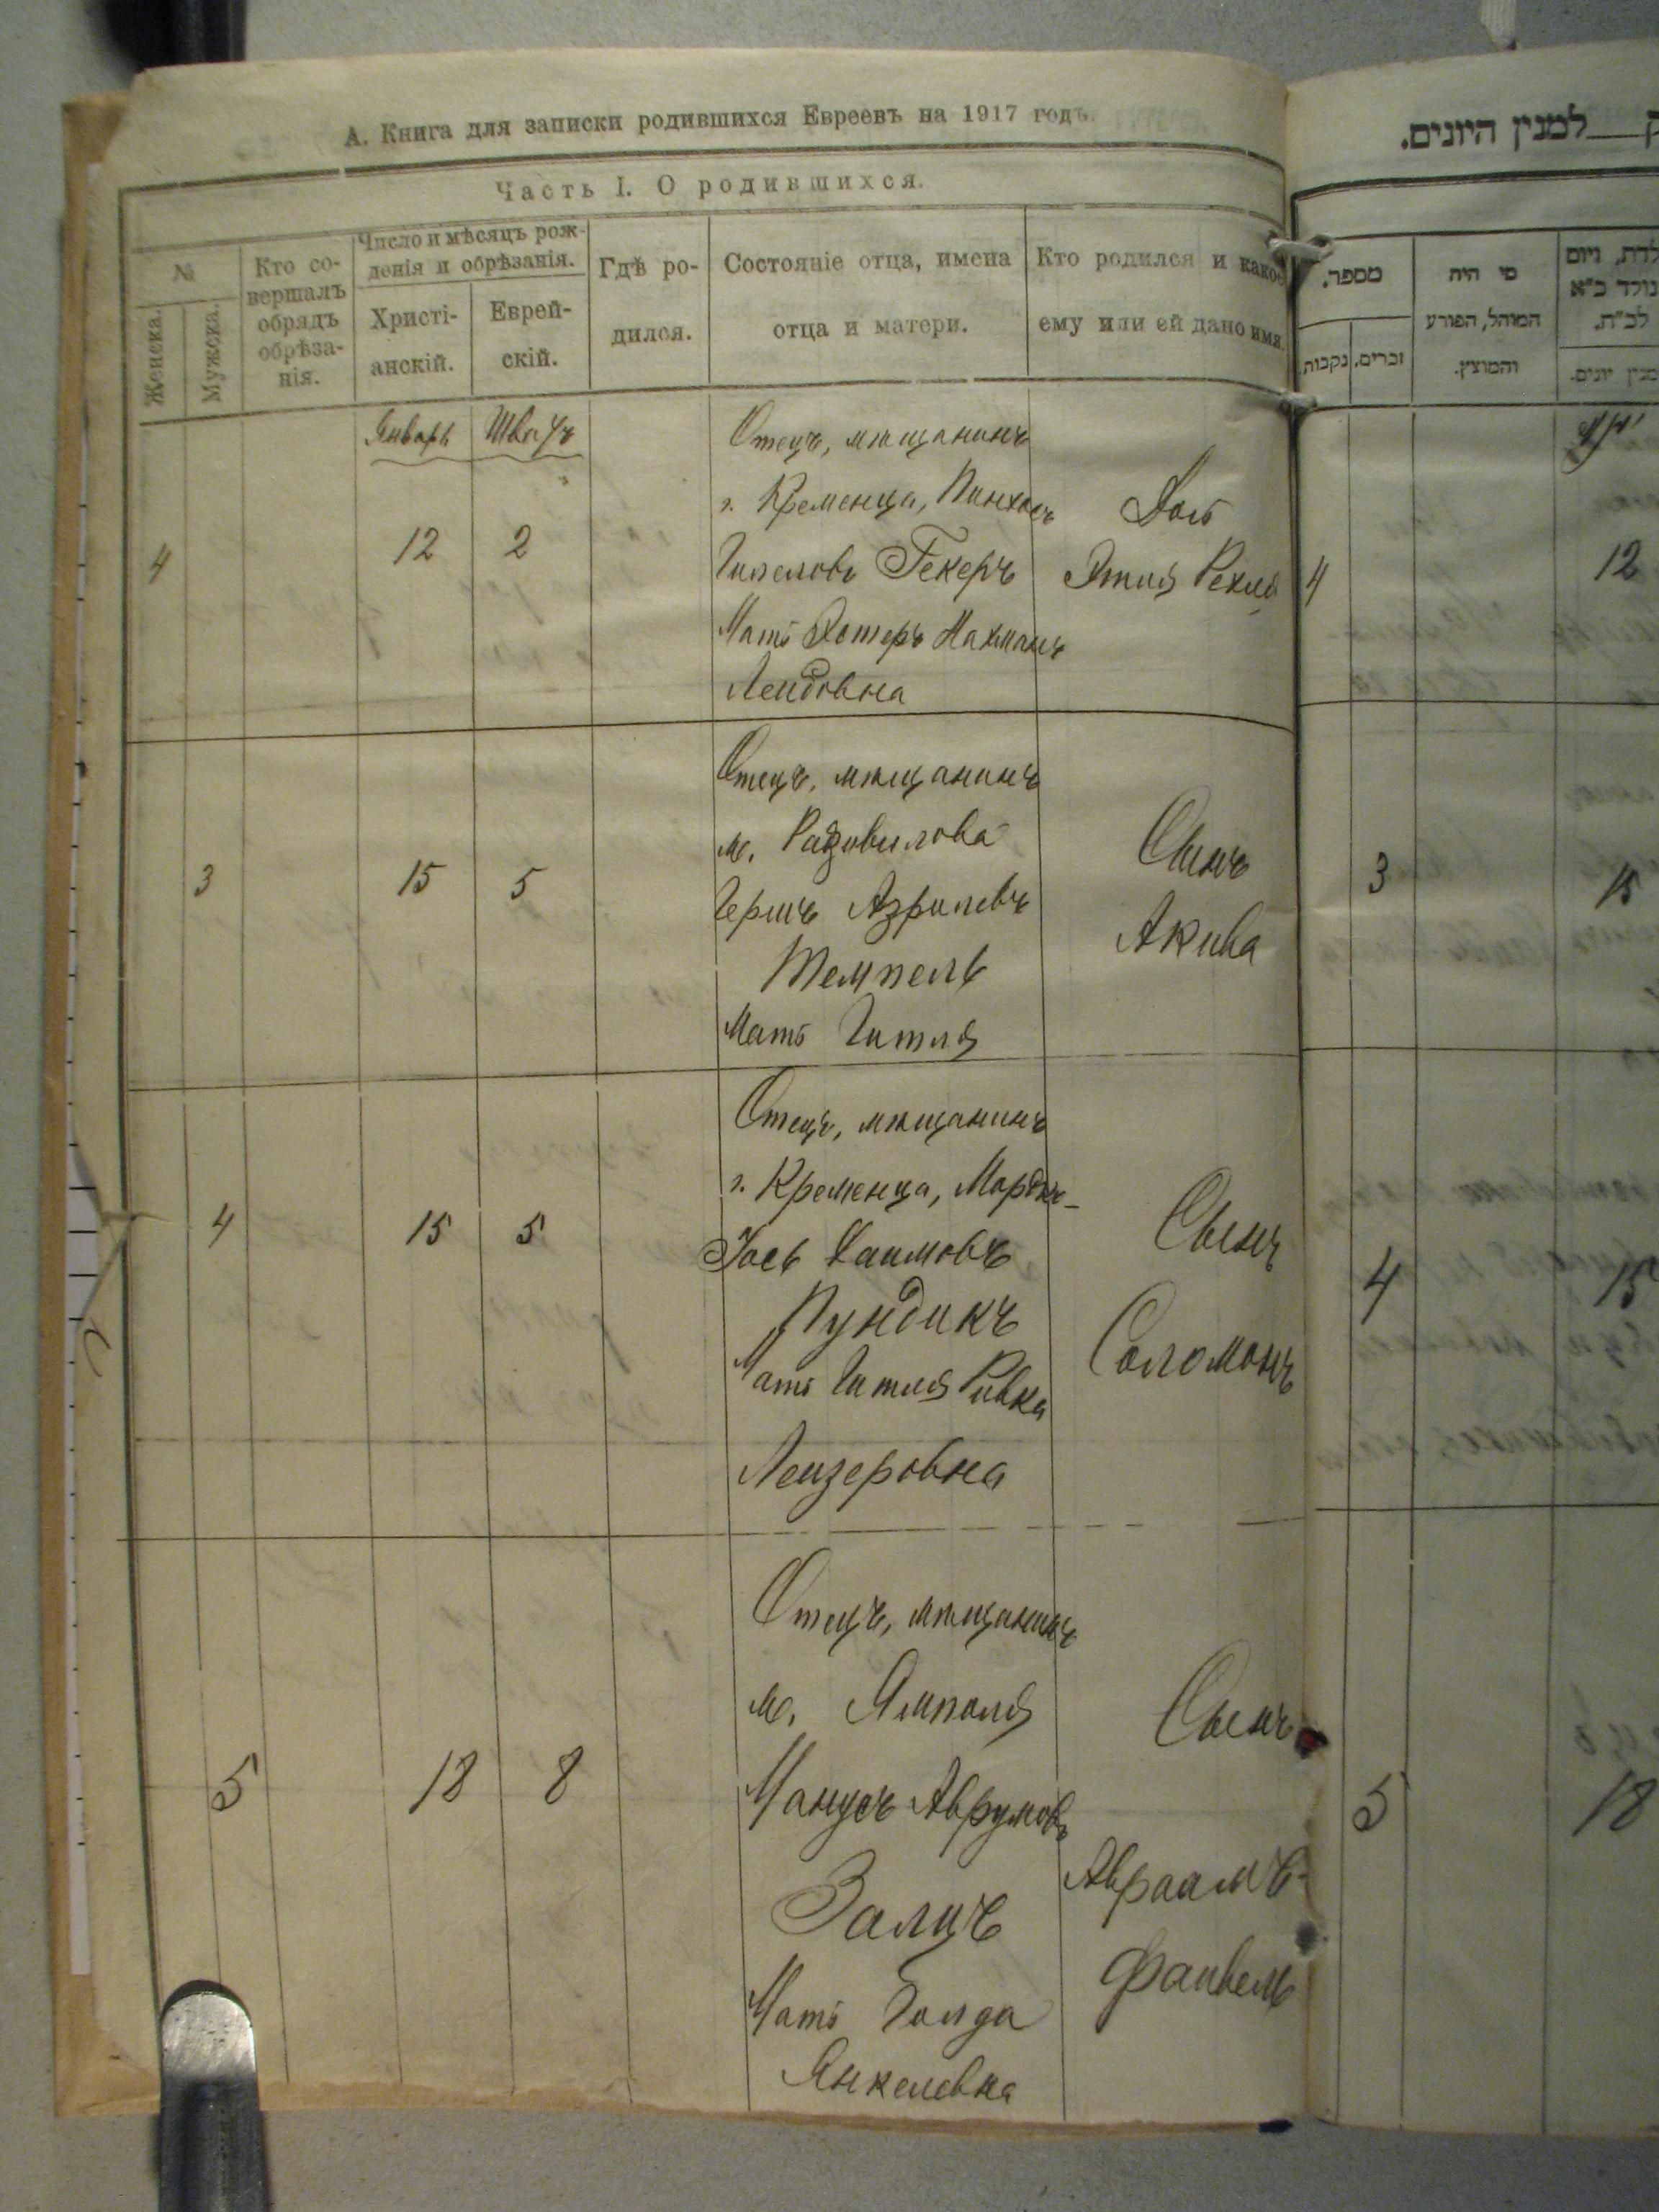 А. Книга для записки родившихся Евреевъ на 1917 годъ.
Часть I. О родившихся.
№
Женска.
Мужска.
Кто со-
вершалъ
обрядъ
обрѣза-
нія.
Число и мѣсяцъ рож-
денія и обрѣзанія.
Христі-
анскій.
Еврей-
скій.
Гдѣ ро-
дился.
Состояніе отца, имена
отца и матери.
Кто родился и какое
ему или ей дано имя.
Январь Шватъ
4 12 2
Отецъ, мѣщанинъ
г. Кременца, Пинхасъ
Гекеръ
Мать Эстеръ Нахманъ
Лейбовна
Дочь
Этля Рехля
3 15 5
Отецъ, мѣщанинъ
м. Радзивилова
Гершъ Азрилевъ
Темпель
Мать Гитля
Сынъ
Акива
4 15 5
Отецъ, мѣщанинъ
г. Кременца, Мордко-
Іось Хаимовъ
Пундикъ
Мать Гитля Ривка
Лейзеровна
Сынъ
Соломонъ
5 18 8
Отецъ, мѣщанинъ
м. Ямполя
Манусъ Аврумовъ
Залцъ
Мать Голда
Янкелевна
Сынъ
Авраамъ-
Файвель
למנין היונים.
מספר.
זכרים.
נקבות.
מי היה
המוהל, הפורע
והמוצץ.
4 12
3 15
4 15
5 18